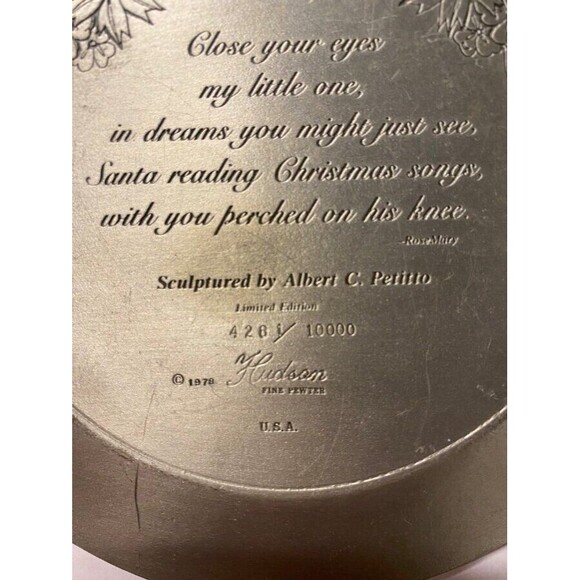 Close your eyes
my little one,
in dreams you might just see,
Santa reading Christmas songs,
with you perched on his knee.
-RoseMary
Sculptured by Albert C. Petitto
Limited Edition
4261/ 10000
© 1978 Hudson
FINE PEWTER
U.S.A.